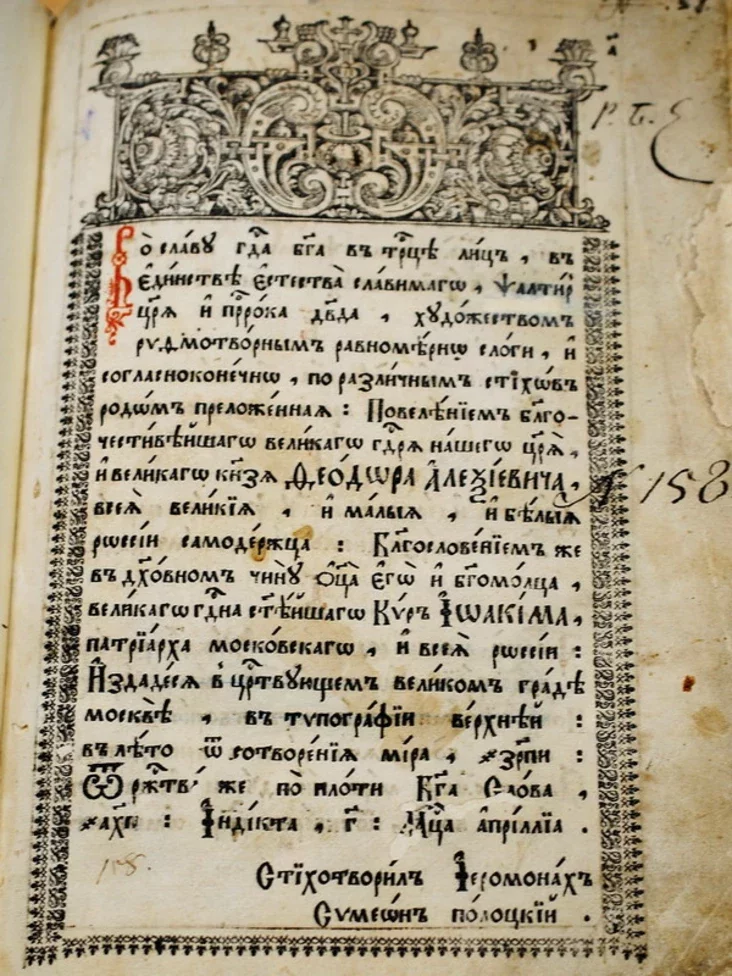 Во сла́вꙋ гдⷭ҇а бг҃а въ трⷪ҇цѣ лицъ , въ
є҆ди́нствѣ є҆стества̀ сла́вимагѡ , ѱалти́рь
цр҃ѧ̀ и҆ прⷪ҇ро́ка дв҃да , хꙋдо́жествомъ
риѳмотво́рнымъ равномѣ́рнѡ сло́ги , и҆
согласноконе́чнѡ , по разли́чнымъ стїхѡ́въ
родѡ́мъ преложе́ннаѧ : Повелѣ́нїемъ бл҃го-
чести́вѣйшагѡ вели́кагѡ гдⷭ҇рѧ на́шегѡ цр҃ѧ̀ ,
и҆ вели́кагѡ кн҃зѧ Ѳео́дѡра А҆леѯі́евича ,
всеѧ̀ вели́кїѧ , и҆ ма́лыѧ , и҆ бѣ́лыѧ
рѡссі́и самоде́ржца : Бл҃гослове́нїемъ же
въ дх҃о́вномъ чи́нꙋ ѻ҆ц҃а̀ є҆гѡ̀ и҆ бг҃омо́лца ,
вели́кагѡ гдⷭ҇на ст҃ѣ́йшагѡ Кѵ́ръ І҆ѡаки́ма ,
патрїа́рха моско́вскагѡ , и҆ всеѧ̀ рѡссі́и :
И҆здаде́сѧ в̾ црⷭ҇твꙋющемъ вели́комъ гра́дѣ
москвѣ̀ , въ тѵпогра́фїи ве́рхнѣй :
въ лѣ́то ѿ сотворе́нїѧ мі́ра , ҂зр҃пи :
Ѿ ржⷭ҇тва̀ же по пло́ти Бг҃а Сло́ва ,
҂ахп҃ : І҆ндїкта , г҃ : Мцⷭ҇а а҆прі́ллїа .
Стїхотвори́лъ І҆еромона́хъ
Сѵмеѡ́нъ по́лоцкїй .
Р. Б.
N 158
158.